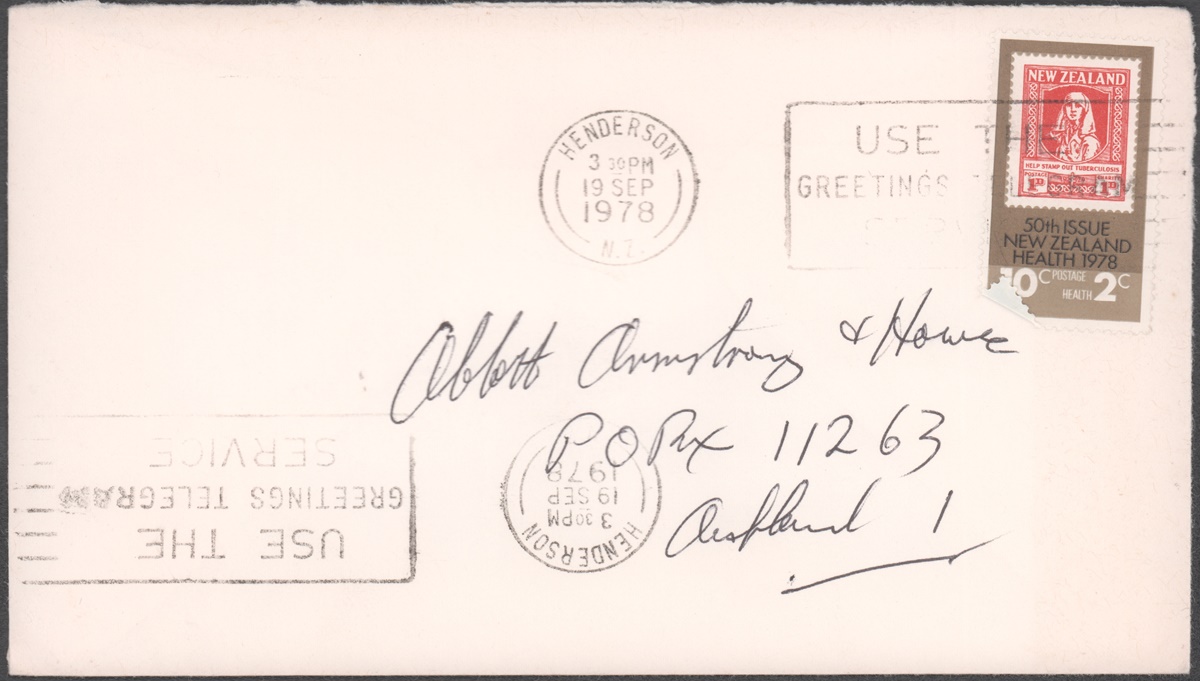 HENDERSON
3 30PM
19 SEP
1978
N.Z.
USE THE
GREETINGS
NEW ZEALAND
HELP STAMP OUT TUBERCULOSIS
POSTAGE
1D 1D
50th ISSUE
NEW ZEALAND
HEALTH 1978
10c POSTAGE
HEALTH 2c
Abbott Armstrong & Howe
P O Box 11263
Auckland 1
USE THE
GREETINGS TELEGRAM
SERVICE
HENDERSON
3 30PM
19 SEP
1978